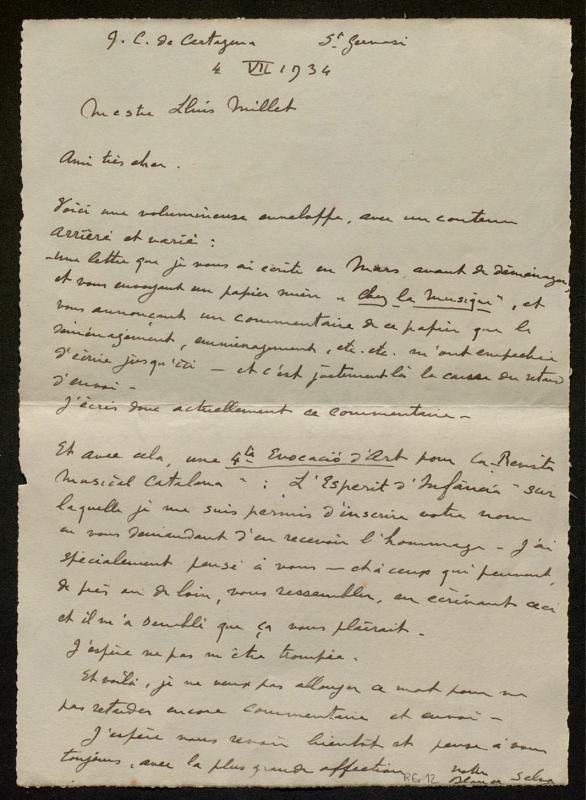 J. C. de Cartagena St Gervasi
4 VII 1934
Mestre Lluis Millet
Ami très cher.
Voici une volumineuse enveloppe, avec un contenu
arriéré et varié :
- une lettre que je vous ai écrite en Mars, avant de déménager,
et vous envoyant un papier mien "Chez la musique", et
vous annonçant un commentaire de ce papier que le
déménagement, emménagement, etc. etc. m'ont empêchée
d'écrire jusqu'ici — et c'est justement là la cause du retard
d'envoi -
J'écris donc actuellement ce commentaire -
Et avec cela, une 4ta Evocació d'Art pour la "Revista
Musical Catalana" : L'Esperit d'Infáncia" sur
laquelle je me suis permis d'inscrire votre nom
en vous demandant d'en recevoir l'hommage - J'ai
spécialement pensé à vous — et à ceux qui peuvent,
de près ou de loin, vous ressembler, en écrivant ceci
et il m'a semblé que ça vous plairait.
J'espère ne pas m'être trompée.
Et voilà, je ne veux pas allonger ce mot pour ne
pas retarder encore commentaire et envoi -
J'espère vous revoir bientôt et pense à vous
toujours, avec la plus grande affection votre
Blanche Selva